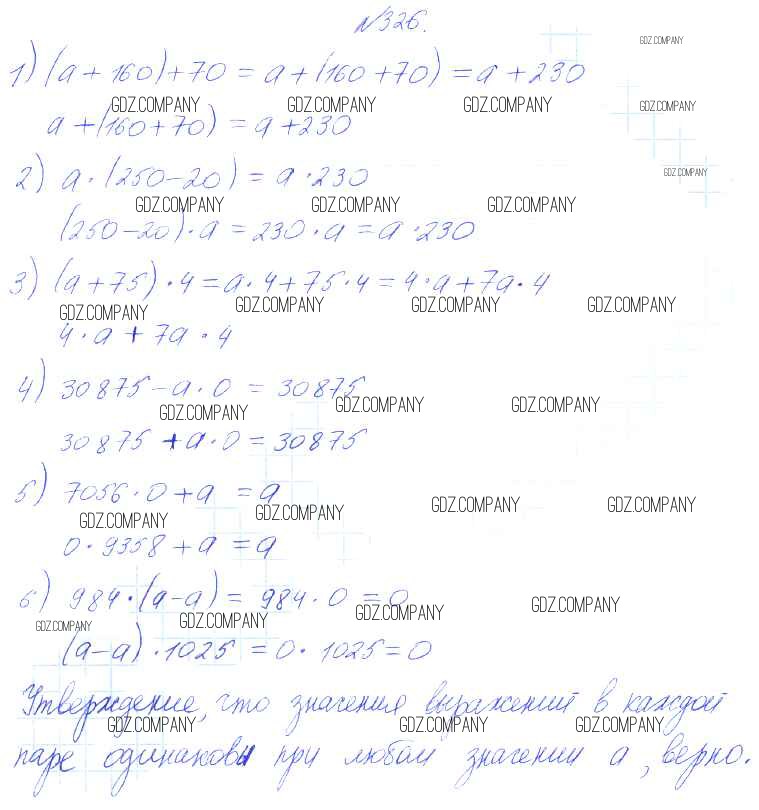 №326.
GDZ.COMPANY
1) (a + 160) + 70 = a + (160 + 70) = a + 230
GDZ.COMPANY GDZ.COMPANY GDZ.COMPANY GDZ.COMPANY
a + (160 + 70) = a + 230
2) a · (250 - 20) = a · 230
GDZ.COMPANY
GDZ.COMPANY GDZ.COMPANY GDZ.COMPANY
(250 - 20) · a = 230 · a = a · 230
3) (a + 75) · 4 = a · 4 + 75 · 4 = 4 · a + 7a · 4
GDZ.COMPANY GDZ.COMPANY GDZ.COMPANY GDZ.COMPANY
4 · a + 7a · 4
4) 30875 - a · 0 = 30875
GDZ.COMPANY GDZ.COMPANY GDZ.COMPANY
30875 + a · 0 = 30875
5) 7056 · 0 + a = a
GDZ.COMPANY GDZ.COMPANY GDZ.COMPANY GDZ.COMPANY
0 · 9358 + a = a
6) 984 · (a - a) = 984 · 0 = 0
GDZ.COMPANY GDZ.COMPANY GDZ.COMPANY GDZ.COMPANY
(a - a) · 1025 = 0 · 1025 = 0
Утверждение, что значения выражений в каждой
GDZ.COMPANY GDZ.COMPANY GDZ.COMPANY
паре одинаковы при любом значении a, верно.